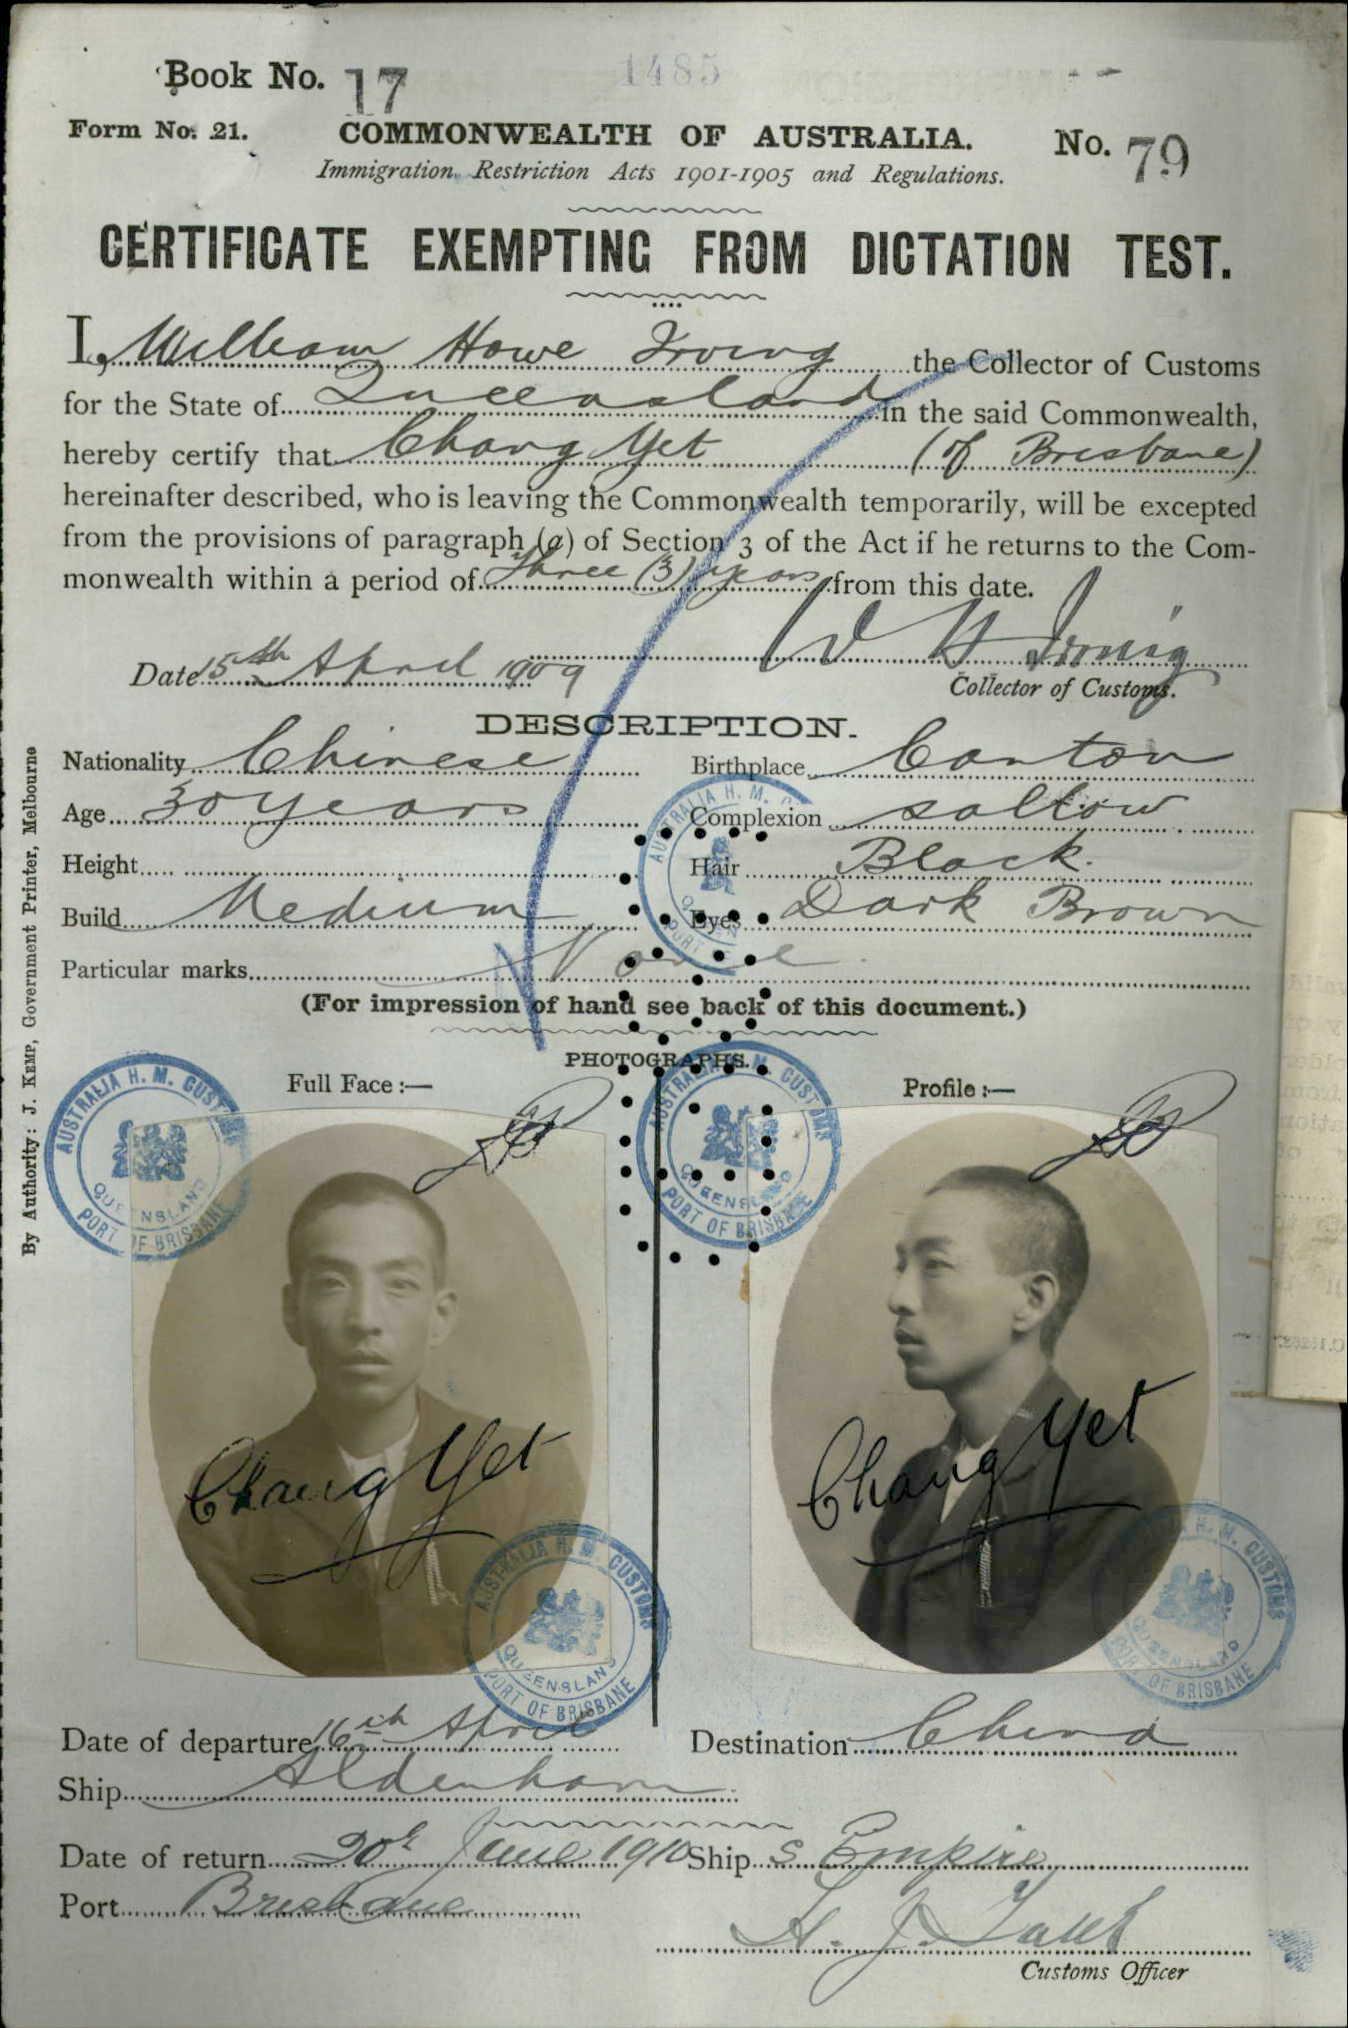 Book No. 17
1485
Form No. 21.
COMMONWEALTH OF AUSTRALIA.
No. 79
Immigration Restriction Acts 1901-1905 and Regulations.
CERTIFICATE EXEMPTING FROM DICTATION TEST.
I, William Howe Irving the Collector of Customs
for the State of Queensland in the said Commonwealth,
hereby certify that Chang Yet (of Brisbane)
hereinafter described, who is leaving the Commonwealth temporarily, will be excepted
from the provisions of paragraph (a) of Section 3 of the Act if he returns to the Com-
monwealth within a period of three (3) years from this date.
W H Irving
Date 15th April 1909
Collector of Customs.
DESCRIPTION.
Nationality Chinese
Birthplace Canton
Age 30 years
Complexion sallow
Height
Hair Black.
Build Medium
Eyes Dark Brown
Particular marks None.
(For impression of hand see back of this document.)
PHOTOGRAPHS.
Full Face :—
Profile :—
AUSTRALIA H. M. CUSTOMS
QUEENSLAND
PORT OF BRISBANE
AUSTRALIA H. M. CUSTOMS
QUEENSLAND
PORT OF BRISBANE
Chang Yet
Chang Yet
AUSTRALIA H. M. CUSTOMS
QUEENSLAND
PORT OF BRISBANE
AUSTRALIA H. M. CUSTOMS
QUEENSLAND
PORT OF BRISBANE
Date of departure 16th April
Destination China
Ship Aldenham.
Date of return 20th June 1910 Ship S Empire
Port Brisbane
Customs Officer
By Authority: J. KEMP, Government Printer, Melbourne